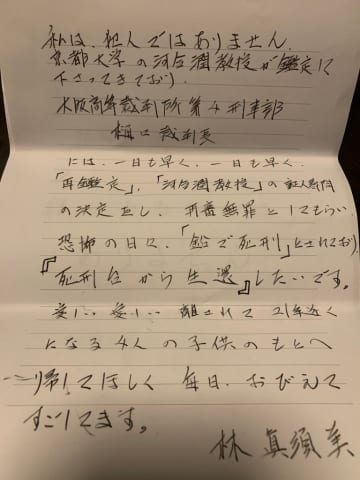 私は、犯人ではありません。
京都大学の河合潤教授が鑑定して
下さってきており、
大阪高等裁判所第4刑事部
樋口裁判長
には、一日も早く、一日も早く、
「再鑑定」、「河合潤教授」の証人尋問
の決定をし、再審無罪としてもらい
恐怖の日々、「鉛で死刑」とされており
『死刑台から生還』したいです。
愛しい、愛しい 離されて 21年近く
となる4人の子供のもとへ
帰してほしく 毎日、おびえて
すごしてます。
林 眞須美